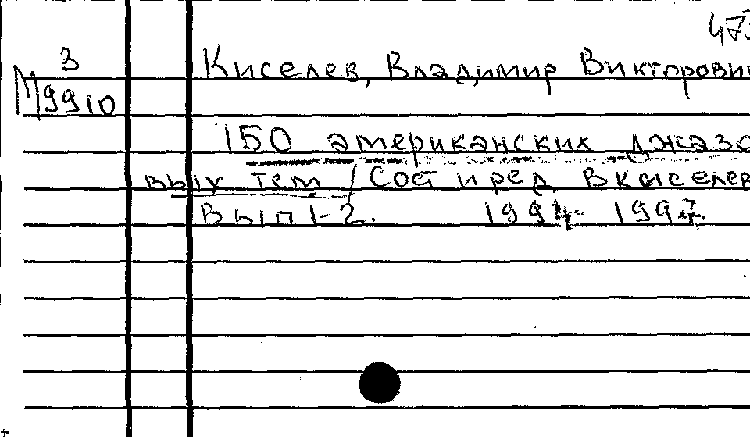 473
3
М9910
Киселев, Владимир Викторович
150 американских джазо
вых тем / Сост и ред. В Киселев
Вып 1-2. 1994- 1997